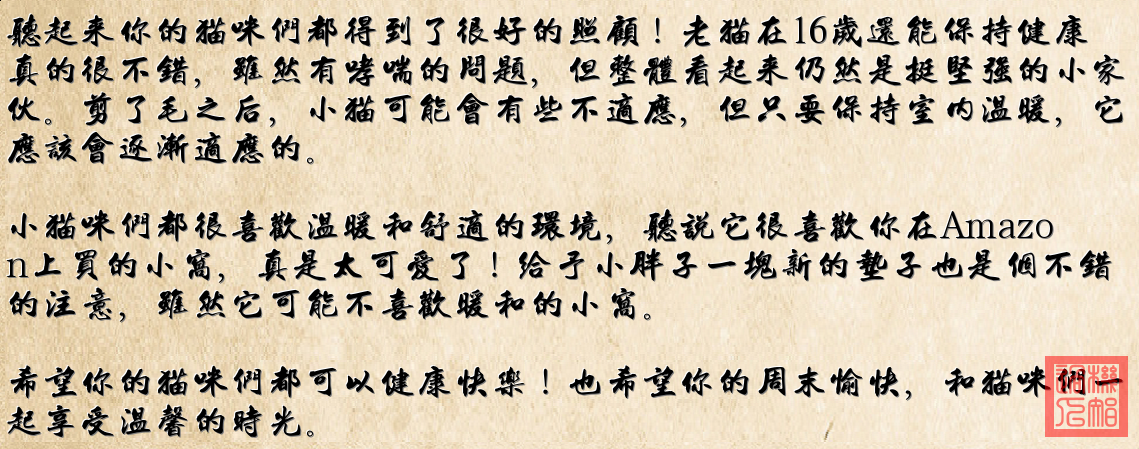 聽起来你的猫咪們都得到了很好的照顧！老猫在16歲還能保持健康
真的很不錯，雖然有哮喘的問題，但整體看起来仍然是挺堅强的小家
伙。剪了毛之后，小猫可能會有些不適應，但只要保持室内温暖，它
應該會逐漸適應的。
小猫咪們都很喜歡温暖和舒適的環境，聽説它很喜歡你在Amazo
n上買的小窩，真是太可愛了！給予小胖子一塊新的墊子也是個不錯
的注意，雖然它可能不喜歡暖和的小窩。
希望你的猫咪們都可以健康快樂！也希望你的周末愉快，和猫咪們一
起享受温馨的時光。